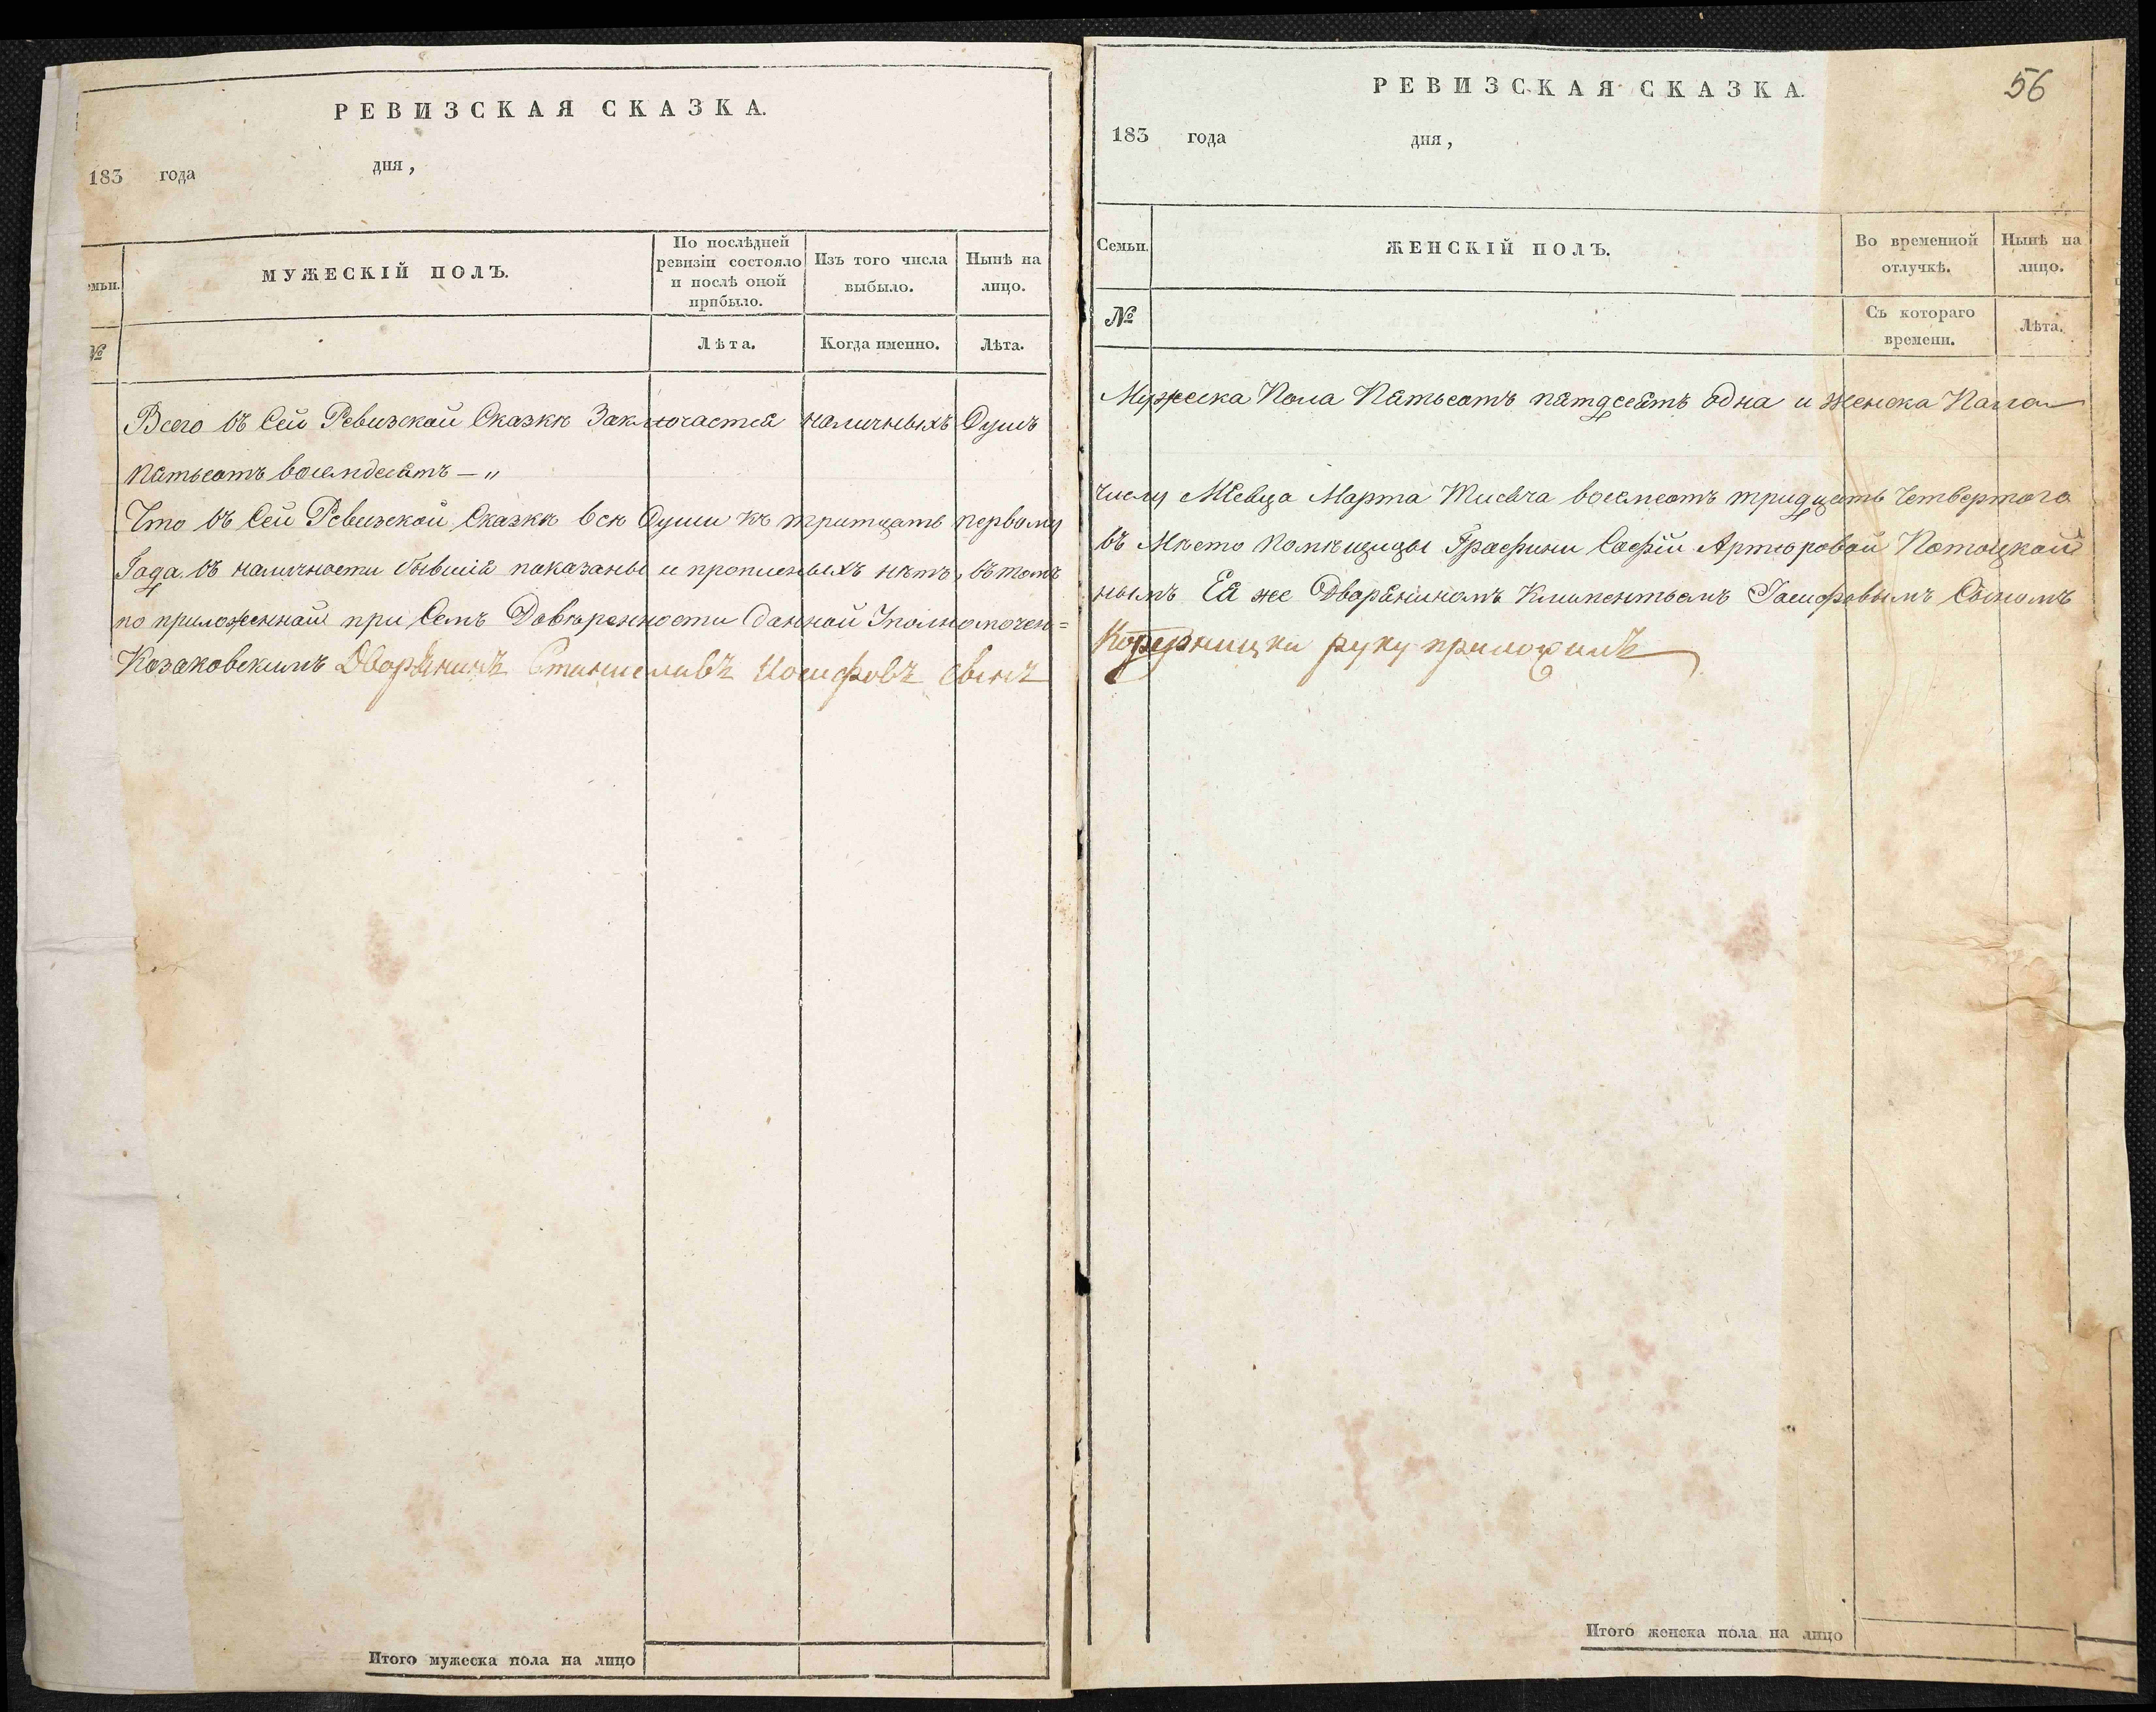 РЕВИЗСКАЯ СКАЗКА.
183 года дня,
Семьи.
МУЖЕСКІЙ ПОЛЪ.
По послѣдней ревизіи состояло и послѣ оной прибыло.
Изъ того числа выбыло.
Нынѣ на лицо.
№
Лѣта.
Когда именно.
Лѣта.
Всего въ Сей Ревизской Сказкѣ Заключается наличныхъ Душъ
пятьсотъ восемдесятъ — „
Что въ Сей Ревизской Сказкѣ всѣ Души къ тритцать первому
Года въ наличности бывшія показаны и прописныхъ нѣтъ, въ томъ
по приложенной при Семъ Довѣренности данной Уполномочен=
Козаковскимъ Дворянинъ Станиславъ Иосифовъ сынъ
Итого мужеска пола на лицо
РЕВИЗСКАЯ СКАЗКА.
56
183 года дня,
Семьи.
ЖЕНСКІЙ ПОЛЪ.
Во временной отлучкѣ.
Нынѣ на лицо.
№
Съ котораго времени.
Лѣта.
Мужеска Пола Пятьсотъ пятдесятъ одна и женска Пола
числу Мсвца Марта Тысвча восемсотъ тридцать Четвертого
въ Мѣсто помѣщицы Графини Софіи Артюровой Потоцкой
нымъ Ея же Дворяниномъ Климентьемъ Іосифовымъ Сыномъ
руку приложилъ
Итого женска пола на лицо